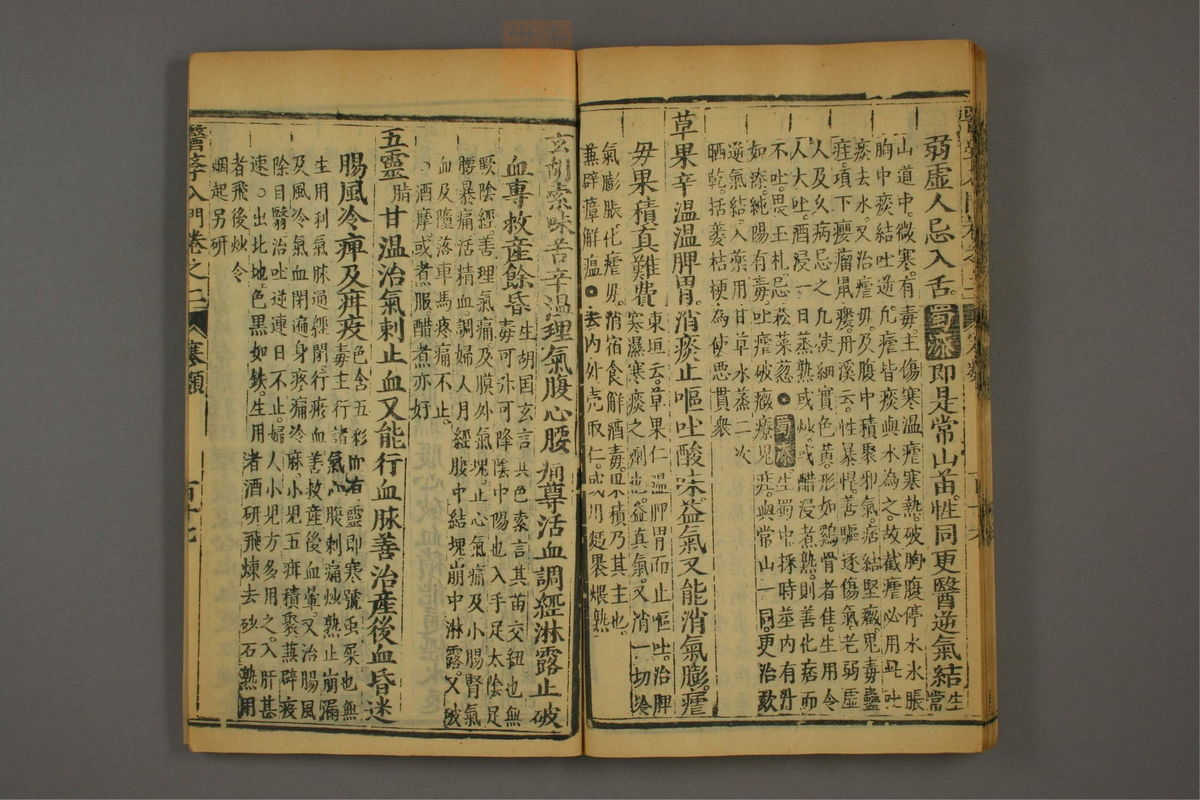 弱虛人忌入舌蜀漆即是常山苗性同更醫逆氣結
常生
山道中微寒有毒主傷寒溫瘧寒熱破胸腹停水水脹
胸中痰結吐逆凡瘧皆痰與水為之故截瘧必用此吐
痰去水又治瘧母及腹中積聚邪氣痞結堅癥鬼毒蠱
疰項下癭瘤鼠瘻丹溪云性暴悍善驅逐傷氣老弱虛
人及久病忌之凡使細實色黃形如鷄骨者佳生用令
人大吐酒浸一日蒸熟或炒或醋浸煮熟則善化痞而
不吐畏玉札忌菘菜葱蜀漆生蜀中採時莖內有汁
如漆純陽有毒吐瘧破癥療鬼疰與常山一同更治欬
逆氣結入藥用甘草水蒸二次
晒乾括蔞枯梗為使惡貫衆
草果辛溫溫脾胃消痰止嘔吐酸味益氣又能消氣膨瘧
毋果積真難費
東垣云草果仁溫脾胃而止嘔吐治脾
寒濕寒痰之劑也益真氣又消一切冷
氣膨脹化瘧毋消宿食解酒毒果積乃其主也
蒸辟瘴解瘟去內外壳取仁或用麪裹煨熟
玄胡索味苦辛溫理氣腹心腰痛尊活血調經淋露止破
血專救產餘昏
生胡国玄言其色索言其苗交紐也無
毒可升可降陰中陽也入手足太陰足
厥陰經善理氣痛及膜外氣塊止心氣痛及小腸腎氣
腰暴痛活精血調婦人月經腹中結塊崩中淋露又破
血及墮落車馬疼痛不止
酒摩或煮服醋煮亦好
五靈脂甘溫治氣刺止血又能行血脉善治產後血昏迷
腸風冷痺及疳疫
色含五彩血有靈即寒號虫屎也無
毒主行諸氣心腹刺痛炒熟止崩漏
生用利氣脉通經閉行瘀血善救產後血暈又治腸風
及風冷氣血閉遍身疼痛冷麻小兒五疳積聚蒸辟疫
除目翳治吐逆連日不止婦人小兒方多用之入肝甚
速出北地色黑如鉄生用者酒研飛煉去砂石熟用
者飛後炒令
烟起另研
醫學入門卷之二 寒類 百十七